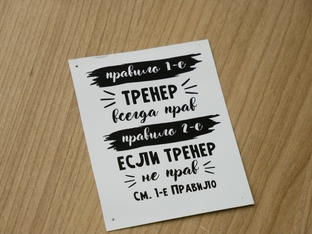 правило 1-е
ТРЕНЕР
всегда прав
правило 2-е
ЕСЛИ ТРЕНЕР
не прав
СМ. 1-Е ПРАВИЛО